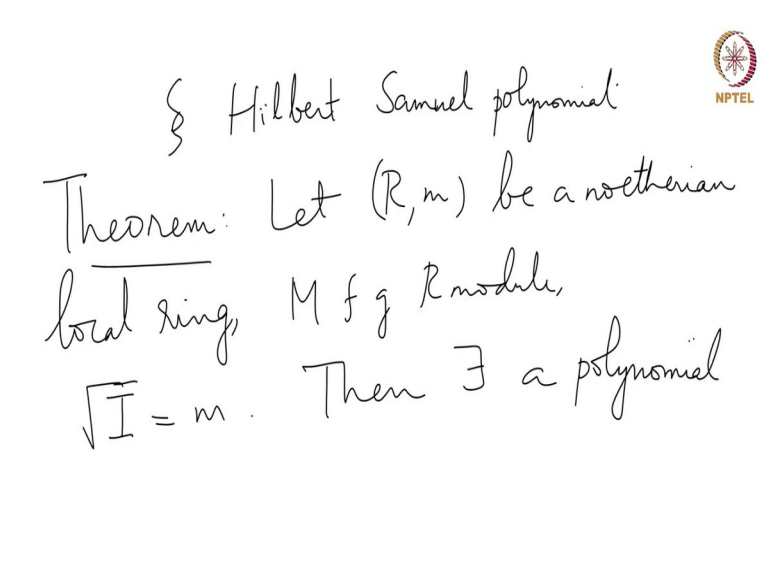 § Hilbert Samuel polynomial
NPTEL
Theorem: Let (R, m) be a noetherian
local ring, M f g R module,
√I = m. Then ∃ a polynomial